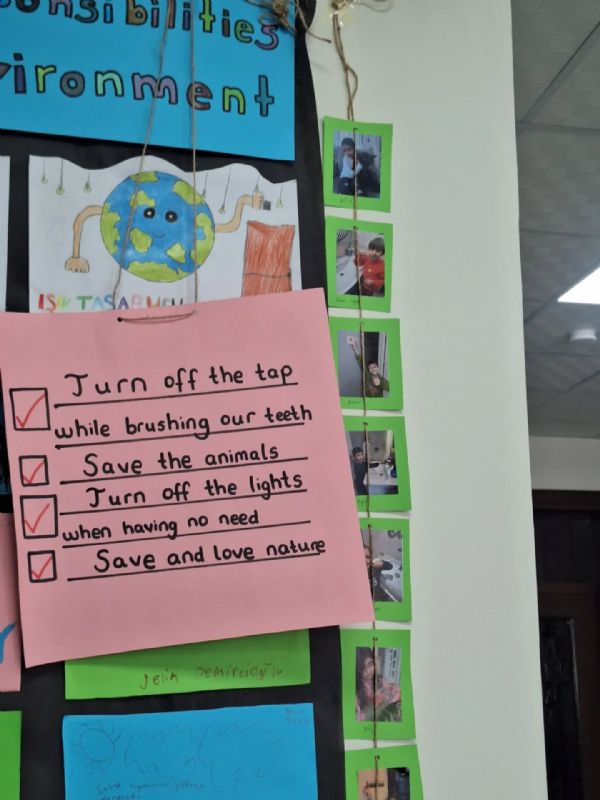 onsibilities
vironment
IŞIK TASARRUFU
Turn off the tap
while brushing our teeth
Save the animals
Turn off the lights
when having no need
Save and love nature
Jelin Demircioğlu